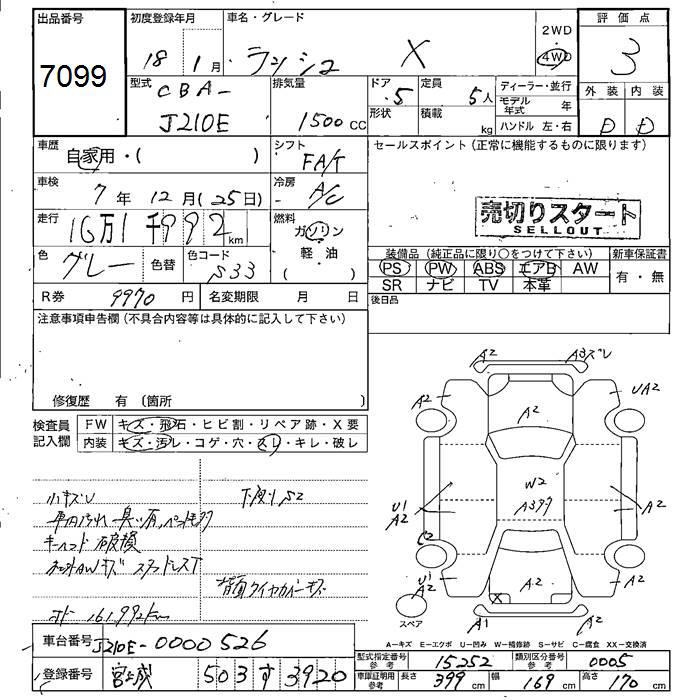 出品番号
7099
初度登録年月
18年1月
車名・グレード
ラッシュ X
2WD
4WD
評価点
3
外装 内装
D D
型式
CBA-
J210E
排気量
1500cc
ドア
5
形状
定員
5人
積載
kg
ディーラー・並行
モデル年式 年
ハンドル 左・右
車歴
自家用・( )
シフト
FA/T
セールスポイント(正常に機能するものに限ります)
車検
7年12月(25日)
冷房
A/C
走行
16万1千992km
燃料
ガソリン
軽・油
売切りスタート
SELLOUT
色
グレー
色替
色コード
S33
装備品(純正品に限り○をつけて下さい)
新車保証書
PS PW ABS エアB AW
SR ナビ TV 本革
有・無
R券 9970円
名変期限 月 日
後日品
注意事項申告欄(不具合内容等は具体的に記入して下さい)
修復歴 有〔箇所 〕
検査員
記入欄
FW キズ・飛石・ヒビ割・リペア跡・X要
内装 キズ・汚レ・コゲ・穴・スレ・キレ・破レ
小キズU
下廻りS2
車内汚れ 臭い有
破損
スタッドレスT
背面タイヤカバーキズ
161,992km
A2 A3ズレ
A2 UA2
A2
W2
A399
U1
A2
A2
C2
U1
A2
A2
A2
X
A1 A2
スペア
A-キズ E-エクボ U-凹み W-補修跡 S-サビ C-腐食 XX-交換済
車台番号 J210E-0000526
登録番号 宮城 503 す 3920
型式指定番号 参考 15252
類別区分番号 参考 0005
車庫証明用 参考 長さ 399cm 幅 169cm 高さ 170cm